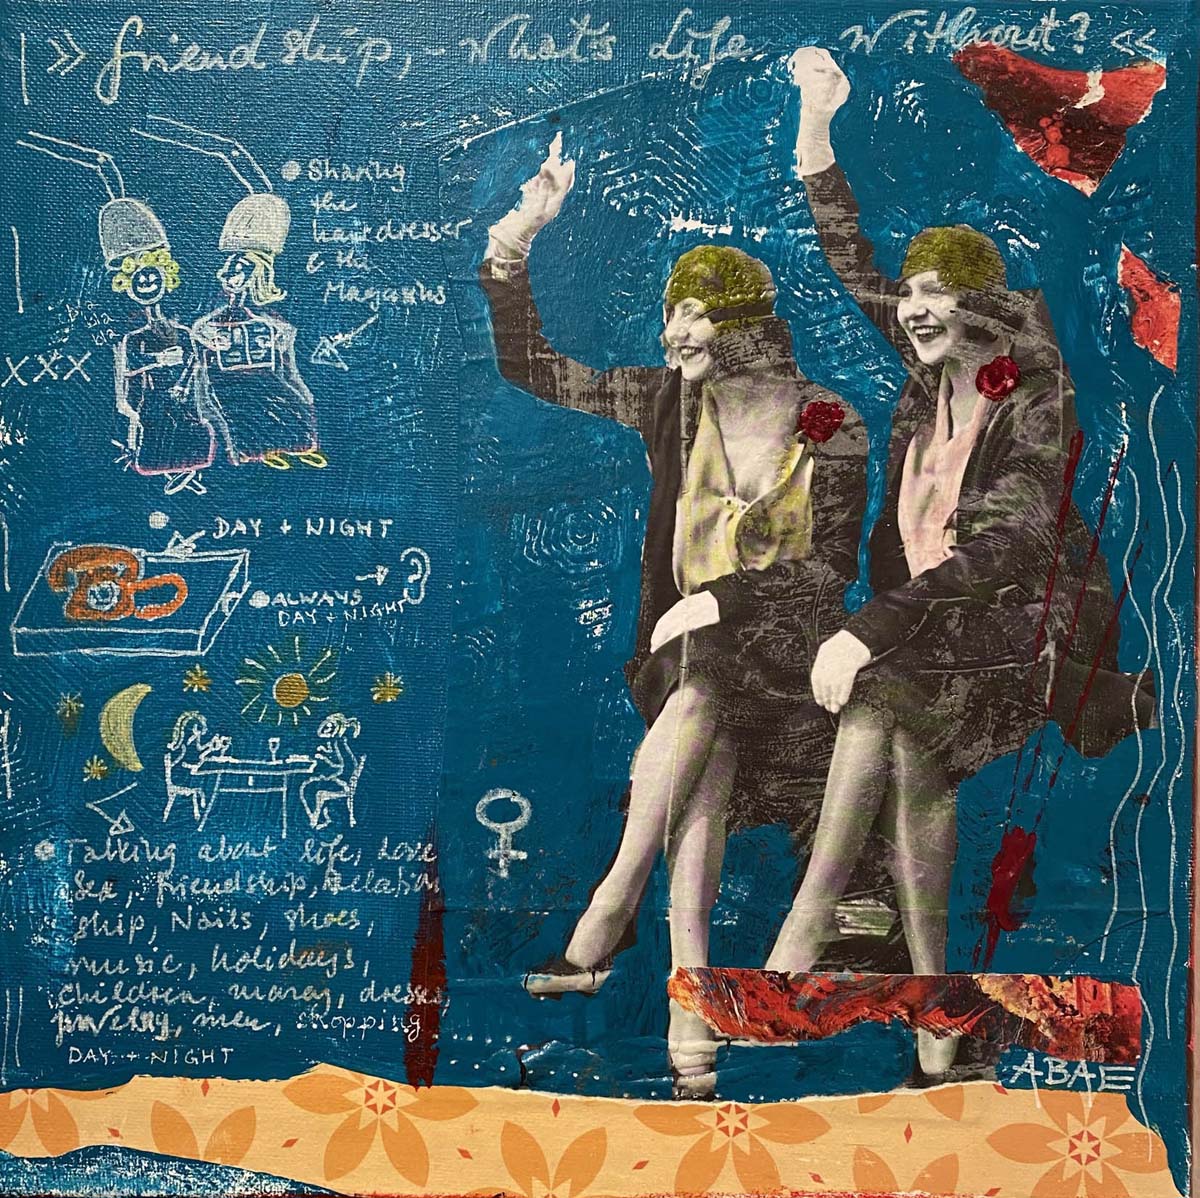 >> friendship, - What's Life without? <<
Sharing
the
hairdresser
& the
Magazins
bla
bla
bla
XXX
DAY + NIGHT
ALWAYS
DAY + NIGHT
Talking about life, Love
Sex, friendship, relation
ship, Nails, shoes,
music, holidays,
children, money, dresses,
jewelry, men, shopping
DAY + NIGHT
ABAE